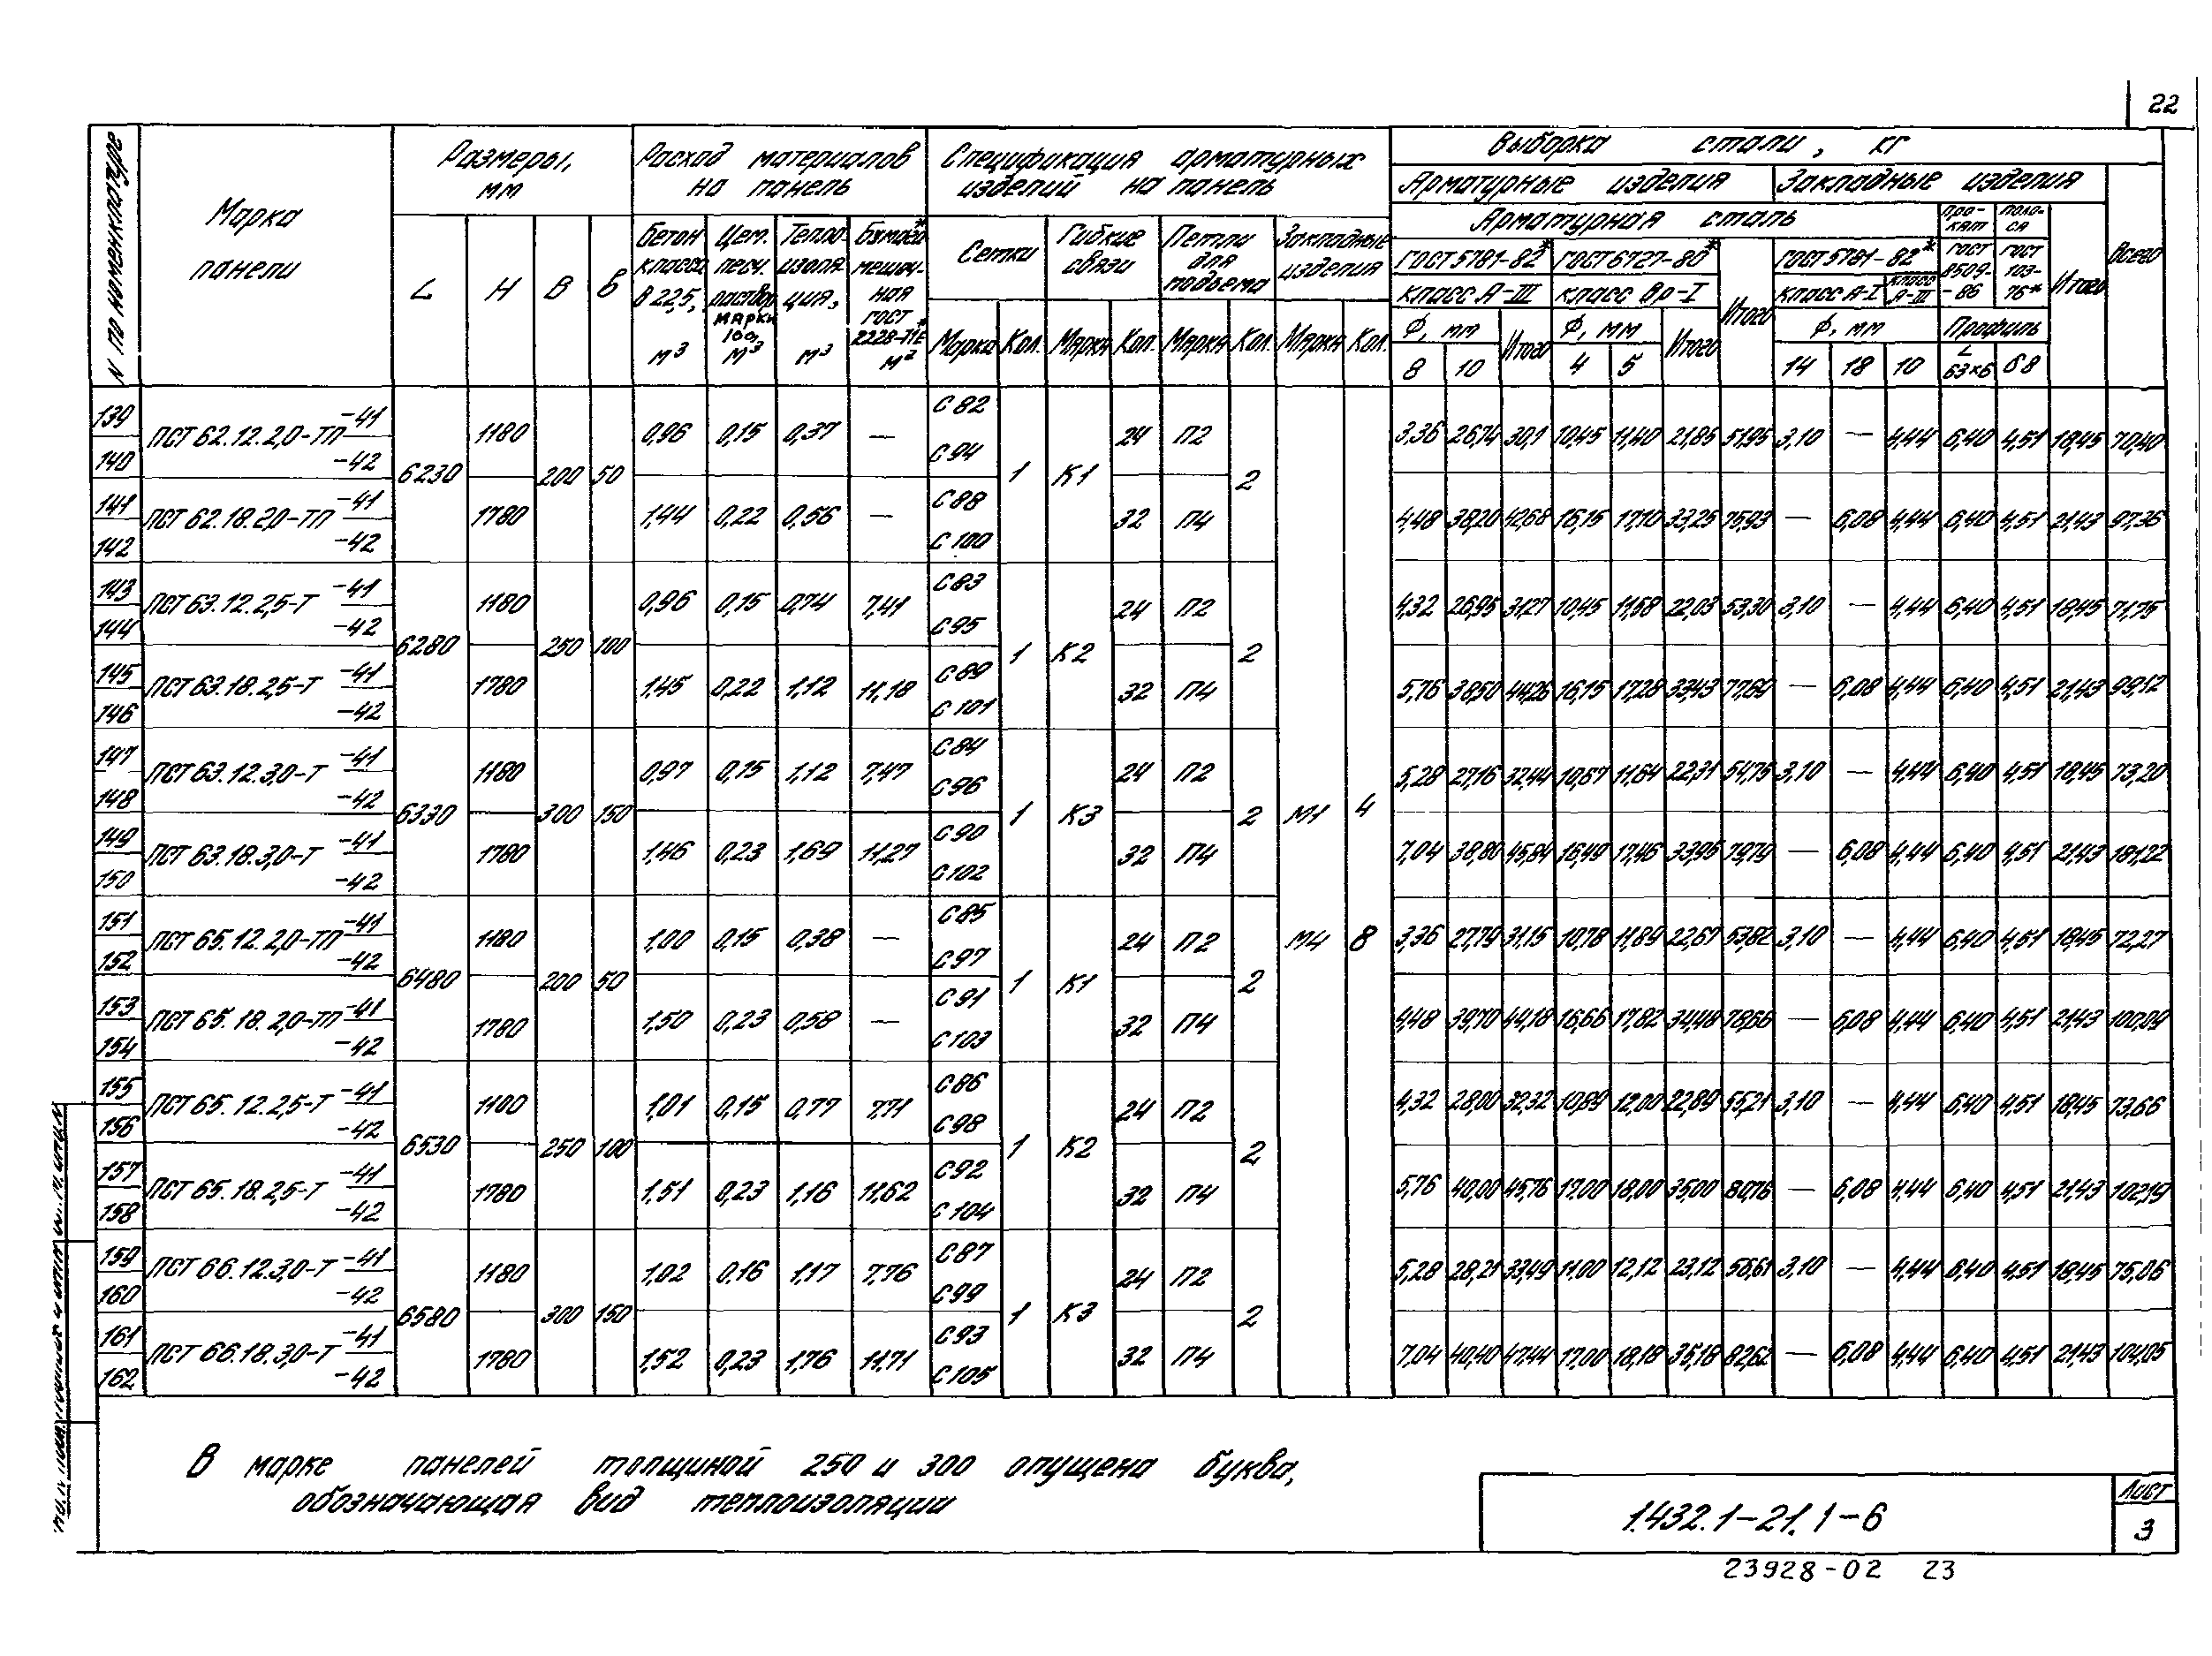 22
N по номенклатуре
Марка панели
Размеры, мм
Расход материалов на панель
Спецификация арматурных изделий на панель
Выборка стали, кг
Арматурные изделия
Закладные изделия
Всего
L
H
B
б
Бетон класса В 22,5, м³
Цем. песч. раствор марки 100, м³
Теплоизоляция, м³
Бумага* мешочная ГОСТ 2228-71Е* м²
Сетки
Гибкие связи
Петли для подъема
Закладные изделия
Арматурная сталь
Прокат
Полоса
ГОСТ 5781-82*
ГОСТ 6727-80*
Итого
ГОСТ 5781-82*
ГОСТ 8509-86
ГОСТ 103-76*
Итого
класс А-III
класс Вр-I
класс А-I
класс А-III
Марка Кол. Марка Кол. Марка Кол. Марка Кол.
Ф, мм Итого Ф, мм Итого Ф, мм Профиль
8 10 4 5 14 18 10 L 63×6 б8
139 140 ПСТ 62.12.2,0-ТП -41 -42 6230 1180 200 50 0,96 0,15 0,37 — С 82 С 94 1 К1 24 П2 2 3,36 26,74 30,1 10,45 11,40 21,85 51,95 3,10 — 4,44 6,40 4,51 18,45 70,40
141 142 ПСТ 62.18.2,0-ТП -41 -42 1780 1,44 0,22 0,56 — С 88 С 100 32 П4 4,48 38,20 42,68 16,15 17,10 33,25 75,93 — 6,08 4,44 6,40 4,51 21,43 97,36
143 144 ПСТ 63.12.2,5-Т -41 -42 6280 1180 250 100 0,96 0,15 0,74 7,41 С 83 С 95 1 К2 24 П2 2 4,32 26,95 31,27 10,45 11,58 22,03 53,30 3,10 — 4,44 6,40 4,51 18,45 71,75
145 146 ПСТ 63.18.2,5-Т -41 -42 1780 1,45 0,22 1,12 11,18 С 89 С 101 32 П4 5,76 38,50 44,26 16,15 17,28 33,43 77,69 — 6,08 4,44 6,40 4,51 21,43 99,12
147 148 ПСТ 63.12.3,0-Т -41 -42 6330 1180 300 150 0,97 0,15 1,12 7,47 С 84 С 96 1 К3 24 П2 2 М1 4 5,28 27,16 32,44 10,67 11,64 22,31 54,75 3,10 — 4,44 6,40 4,51 18,45 73,20
149 150 ПСТ 63.18.3,0-Т -41 -42 1780 1,46 0,23 1,69 11,27 С 90 С 102 32 П4 7,04 38,80 45,84 16,49 17,46 33,95 79,79 — 6,08 4,44 6,40 4,51 21,43 181,22
151 152 ПСТ 65.12.2,0-ТП -41 -42 6480 1180 200 50 1,00 0,15 0,38 — С 85 С 97 1 К1 24 П2 2 М4 8 3,36 27,79 31,15 10,78 11,89 22,67 53,82 3,10 — 4,44 6,40 4,51 18,45 72,27
153 154 ПСТ 65.18.2,0-ТП -41 -42 1780 1,50 0,23 0,58 — С 91 С 103 32 П4 4,48 39,70 44,18 16,66 17,82 34,48 78,66 — 6,08 4,44 6,40 4,51 21,43 100,09
155 156 ПСТ 65.12.2,5-Т -41 -42 6530 1180 250 100 1,01 0,15 0,77 7,71 С 86 С 98 1 К2 24 П2 2 4,32 28,00 32,32 10,89 12,00 22,89 55,21 3,10 — 4,44 6,40 4,51 18,45 73,66
157 158 ПСТ 65.18.2,5-Т -41 -42 1780 1,51 0,23 1,16 11,62 С 92 С 104 32 П4 5,76 40,00 45,76 17,00 18,00 35,00 80,76 — 6,08 4,44 6,40 4,51 21,43 102,19
159 160 ПСТ 66.12.3,0-Т -41 -42 6580 1180 300 150 1,02 0,16 1,17 7,76 С 87 С 99 1 К3 24 П2 2 5,28 28,21 33,49 11,00 12,12 23,12 56,61 3,10 — 4,44 6,40 4,51 18,45 75,06
161 162 ПСТ 66.18.3,0-Т -41 -42 1780 1,52 0,23 1,76 11,71 С 93 С 105 32 П4 7,04 40,40 47,44 17,00 18,18 35,18 82,62 — 6,08 4,44 6,40 4,51 21,43 104,05
В марке панелей толщиной 250 и 300 опущена буква,
обозначающая вид теплоизоляции
1.432.1-21.1-6
Лист
3
23928-02 23